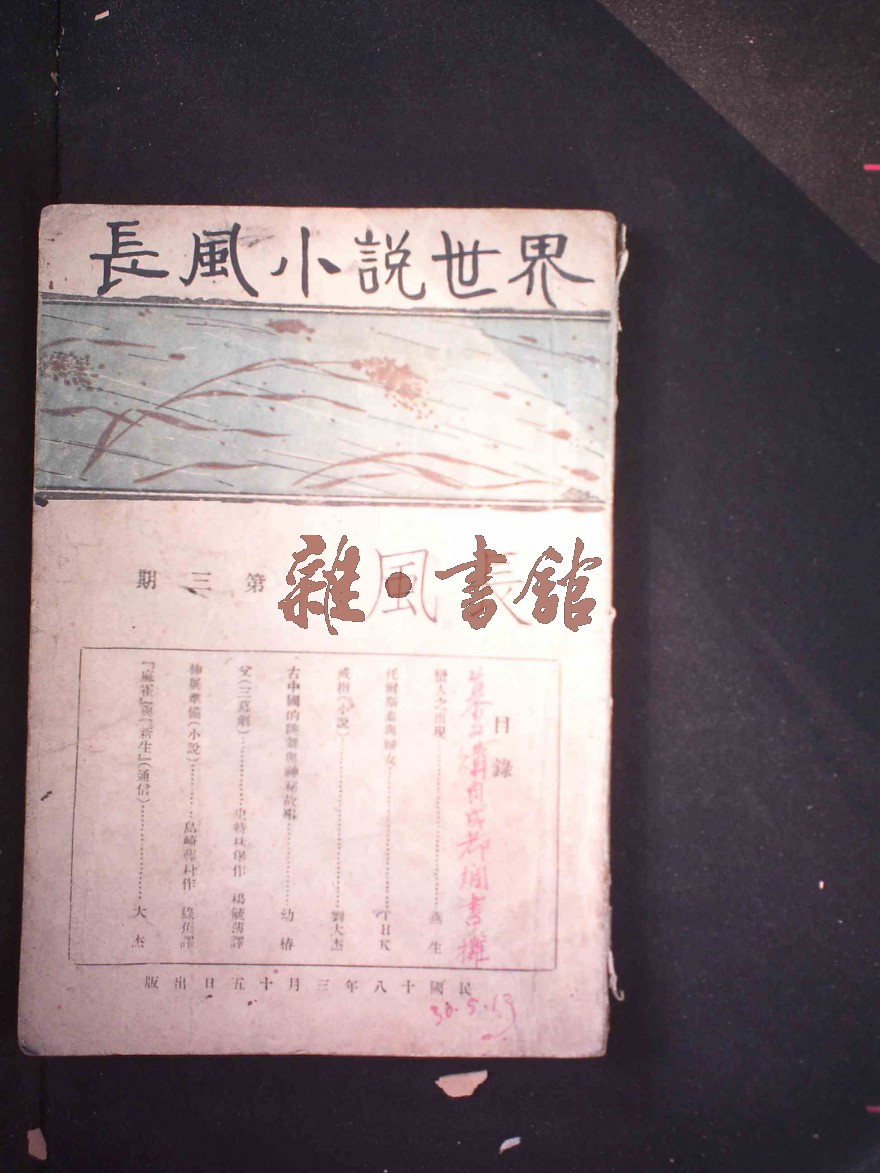 長風小説世界
長風
第三期
目錄
蠻人之出現……燕生
托爾斯泰與婦女……THK
(小說)……劉大杰
古中國的跳舞與神秘故事……幼椿
父(三幕劇)……史特林堡作 楊毓溥譯
伸展準備(小說)……島崎藤村作 譯
『麻雀』與『新生』(通信)……大杰
民國十八年三月十五日出版
購自成都書攤
雜·書館